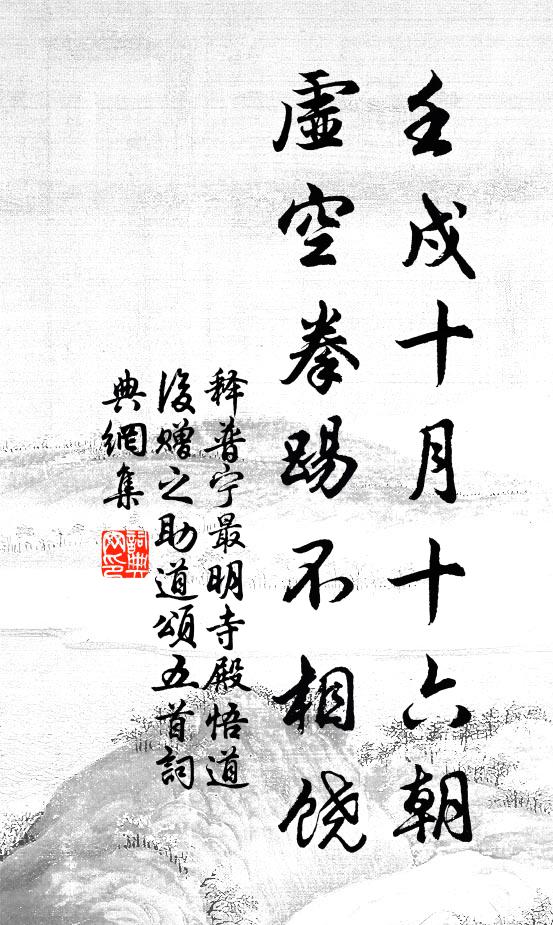 壬戌十月十六朝
虚空拳踢不相饶
释普宁最明寺殿悟道
後赠之助道颂五首詞
典網集
詞典
网印